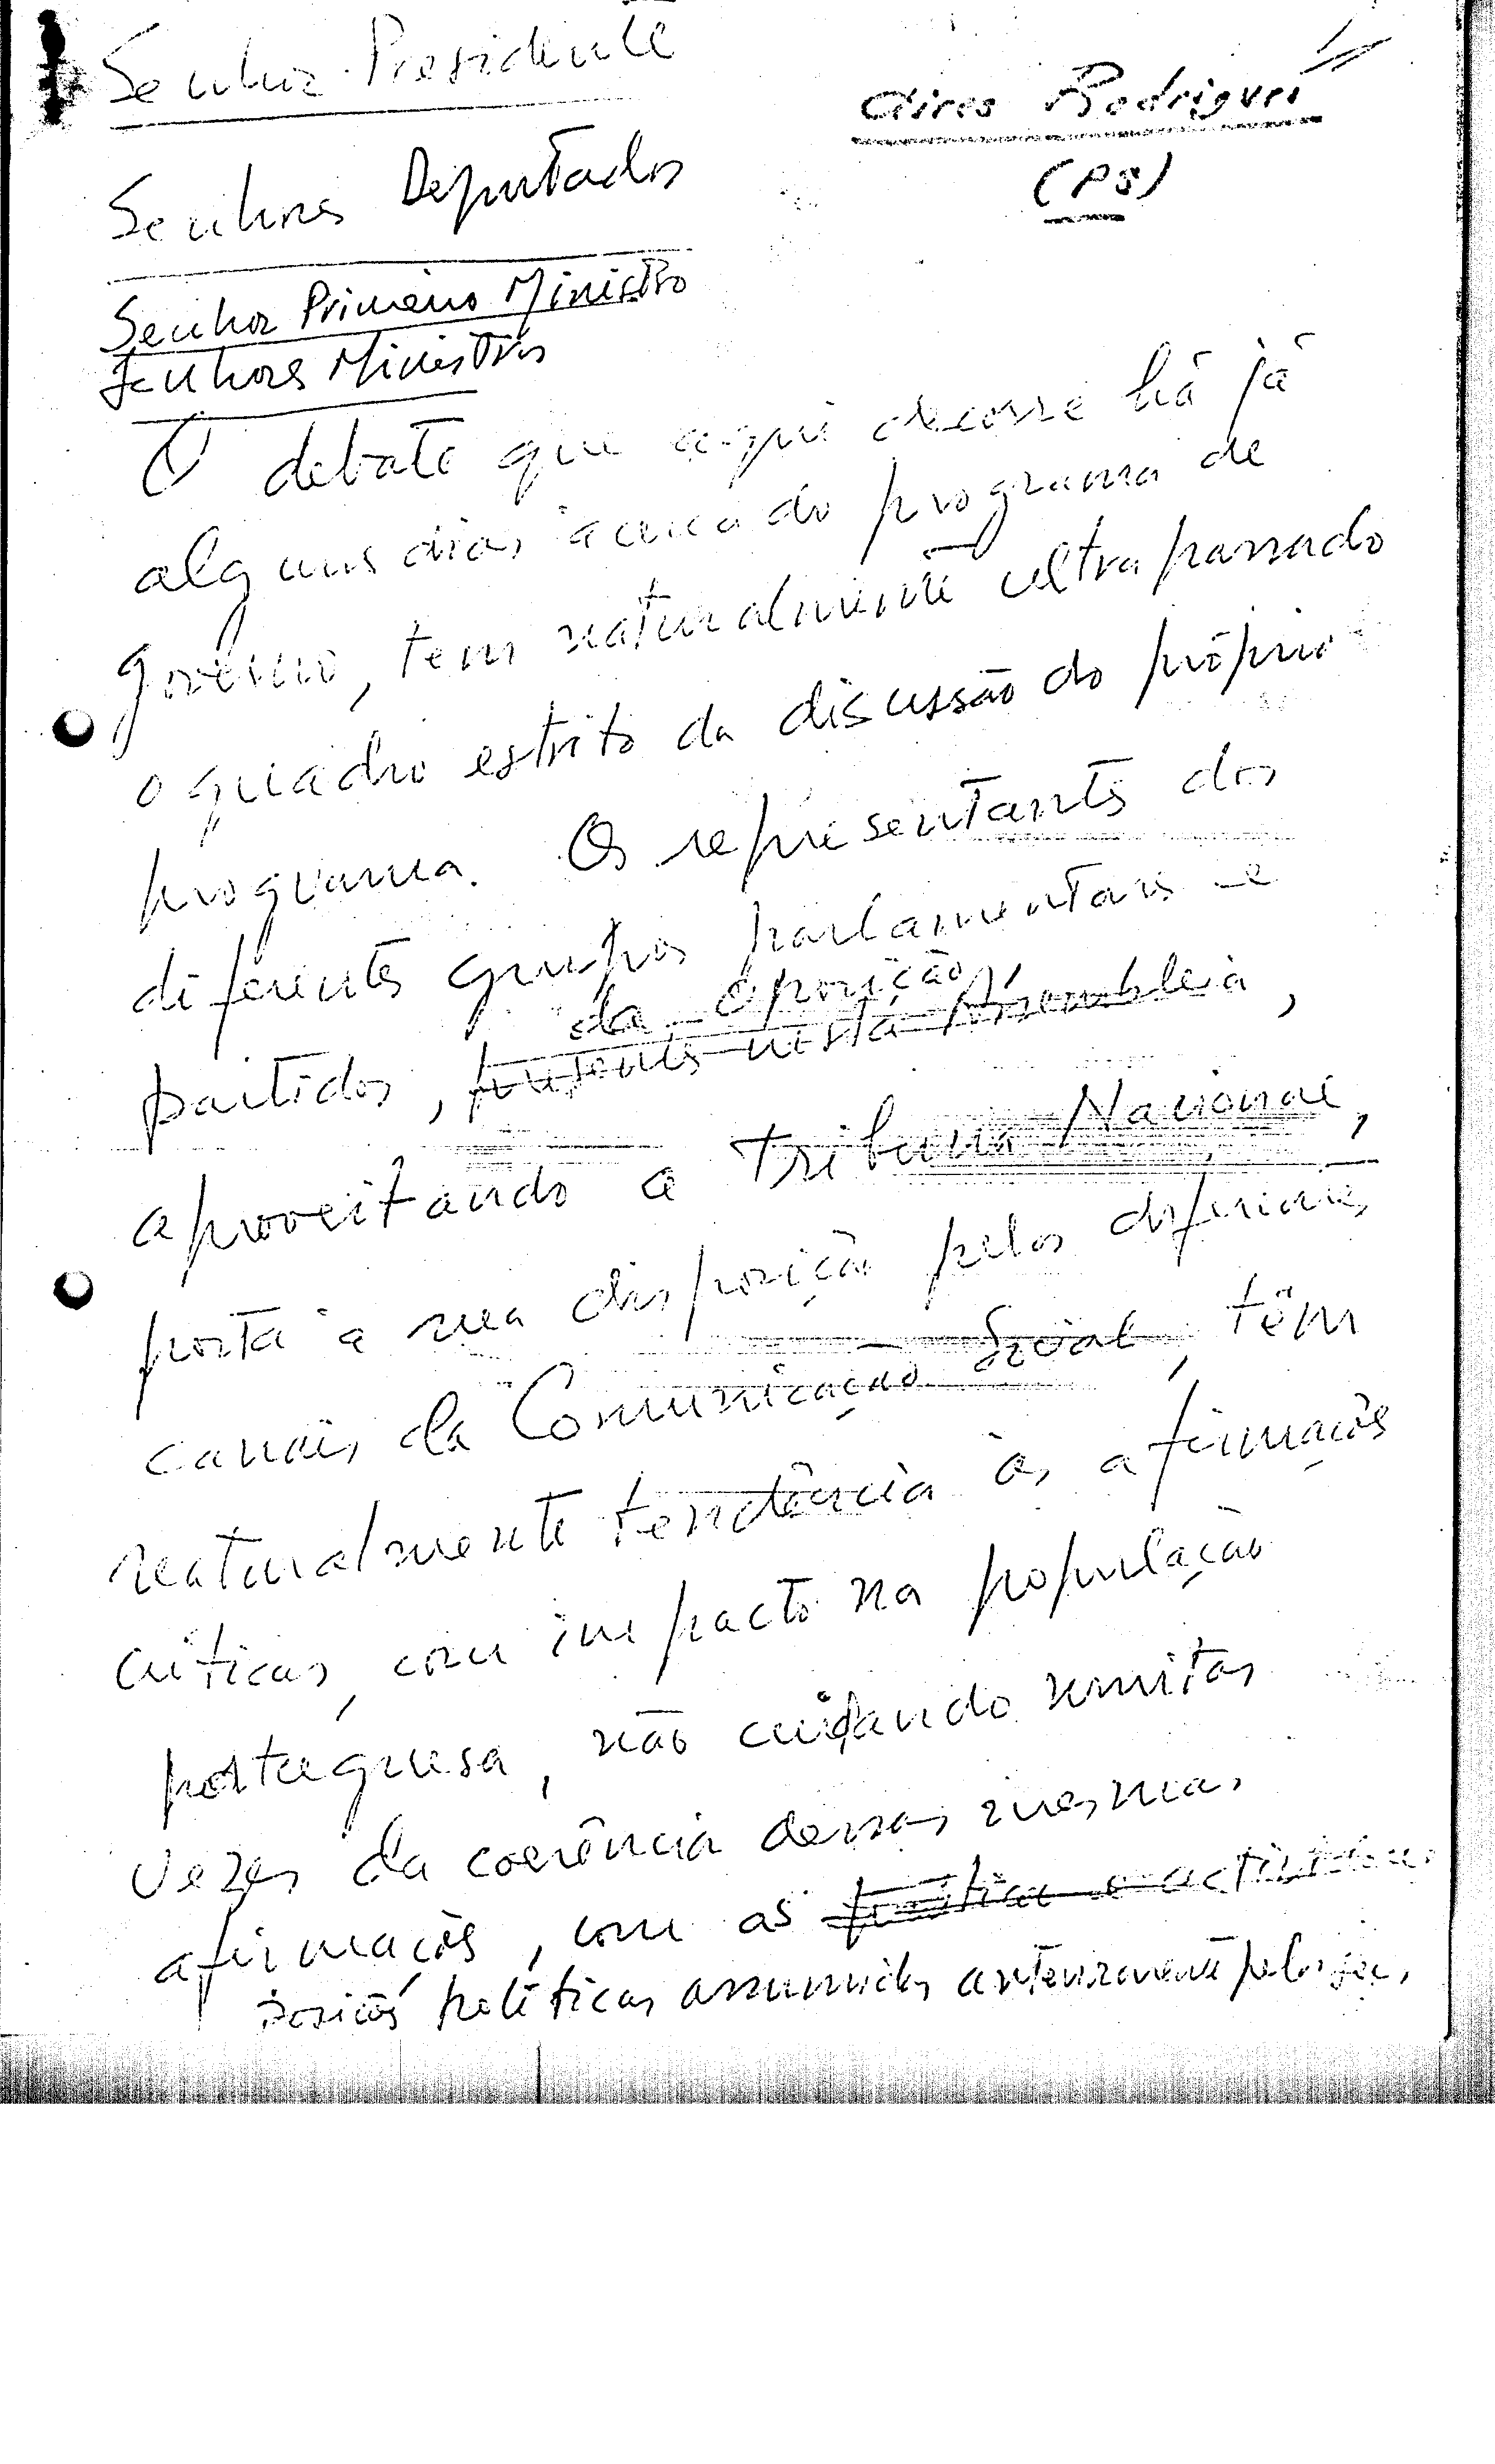 Senhor Presidente
Aires Rodrigues
(PS)
Senhores Deputados
Senhor Primeiro Ministro
Senhores Ministros
O debate que aqui decorre há já
alguns dias àcerca do programa de
governo, tem naturalmente ultrapassado
o quadro estrito da discussão do próprio
programa. Os representantes dos
diferentes grupos parlamentares e
da oposição,
partidos, presentes nesta Assembleia,
aproveitando a Tribuna Nacional,
posta à sua disposição pelos diferentes
canais da Comunicação Social, têm
naturalmente tendência às afirmações
criticas, com impacto na população
portuguesa, não cuidando muitas
vezes da coerência dessas mesmas
afirmações, com as política e actividade
posições políticas assumidas anteriormente pelos seus